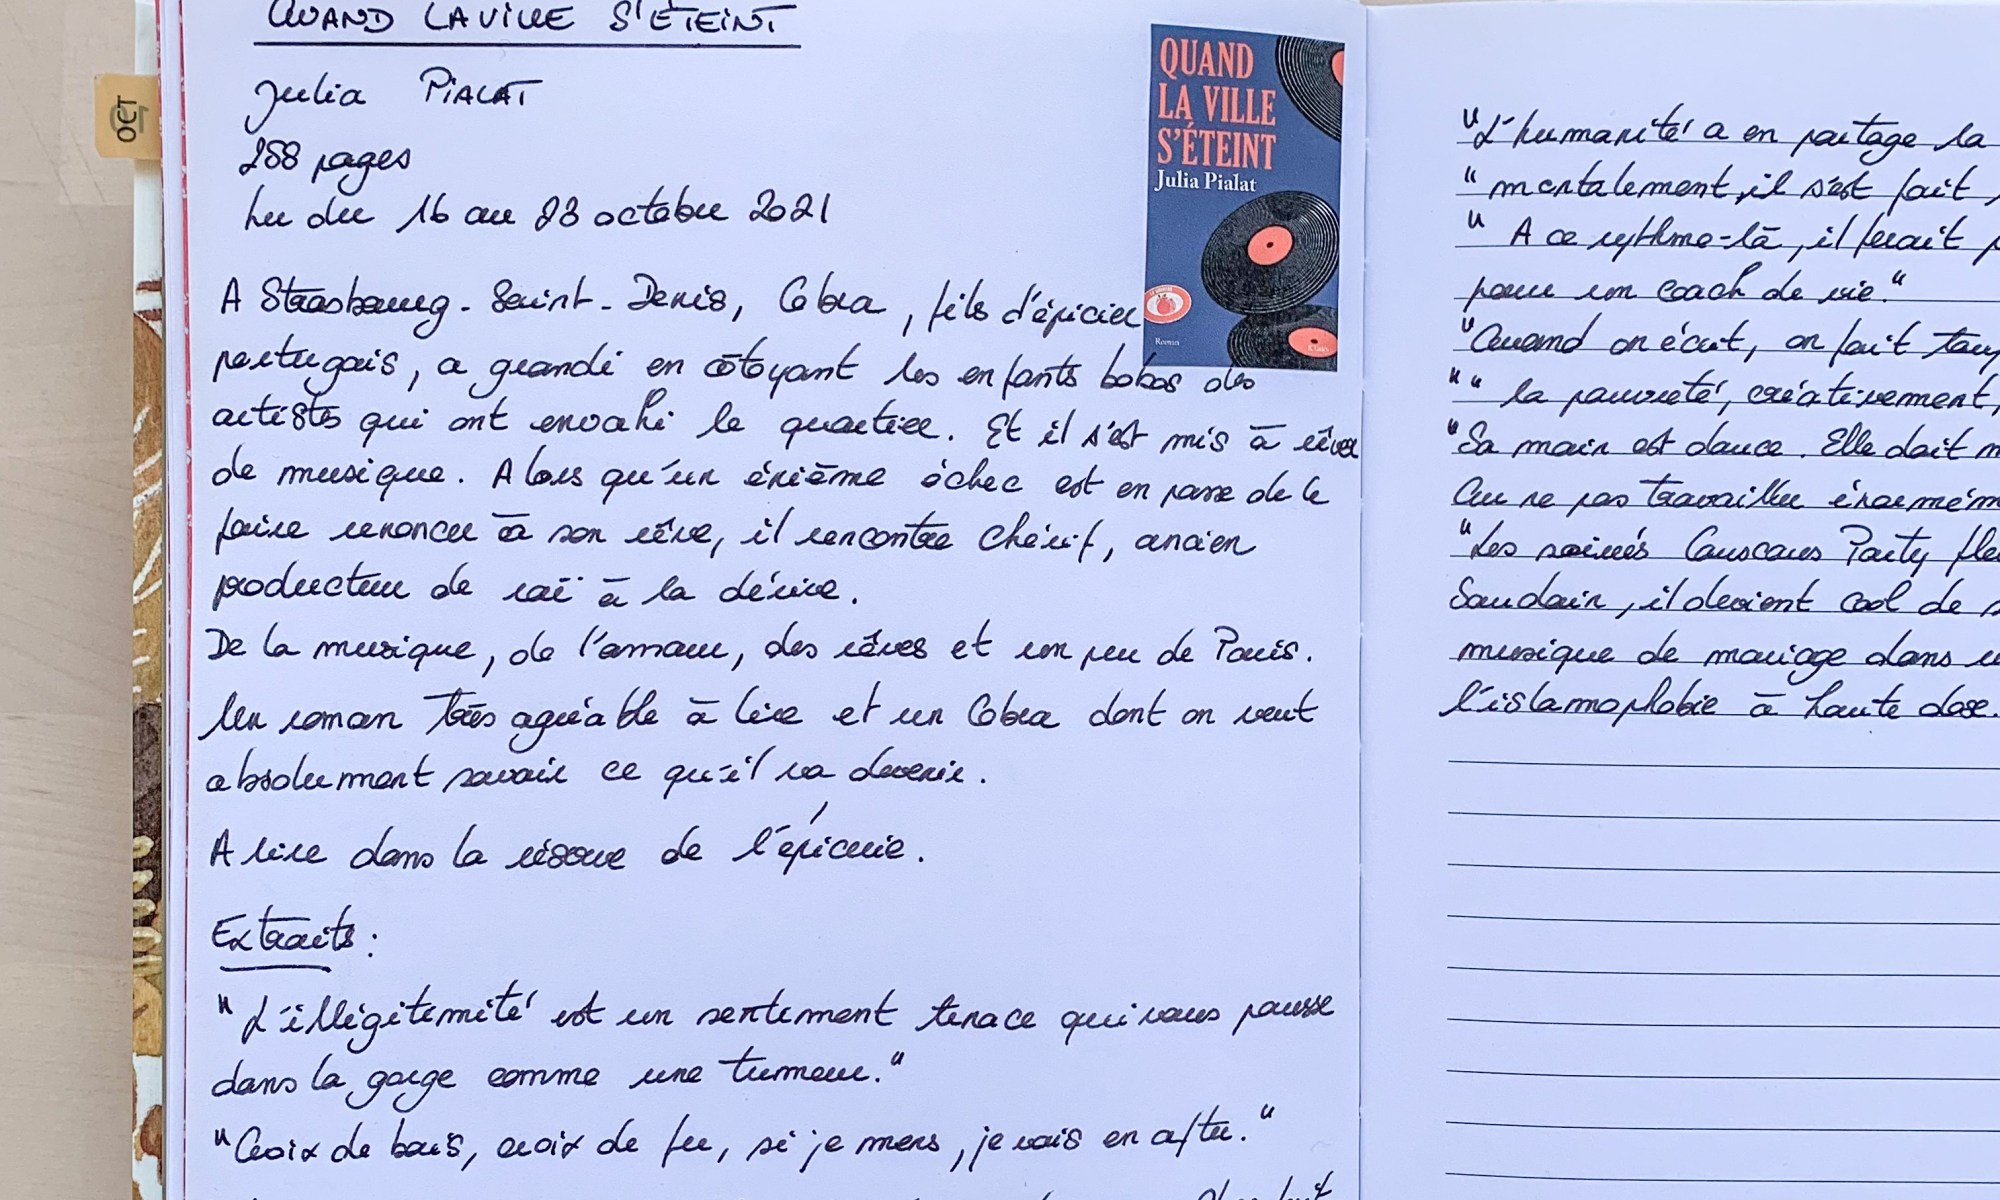 QUAND LA VILLE S'ÉTEINT
Julia PIALAT
288 pages
Lu du 16 au 23 octobre 2021
A Strasbourg-Saint-Denis, Cobra, fils d'épicier
portugais, a grandi en côtoyant les enfants bobos des
artistes qui ont envahi le quartier. Et il s'est mis à rêver
de musique. Alors qu'un énième échec est en passe de le
faire renoncer à son rêve, il rencontre Chérif, ancien
producteur de raï à la dérive.
De la musique, de l'amour, des rêves et un peu de Paris.
Un roman très agréable à lire et un Cobra dont on veut
absolument savoir ce qu'il va devenir.
A lire dans la réserve de l'épicerie.
Extraits :
"L'illégitimité est un sentiment tenace qui vous pousse
dans la gorge comme une tumeur."
"Croix de bois, croix de feu, si je mens, je vais en after."
OCT
QUAND
LA VILLE
S'ÉTEINT
Julia Pialat
Roman
"L'humanité a en partage la
" mentalement, il s'est fait
" A ce rythme-là, il ferait
pour un coach de vie."
"Quand on écrit, on fait
"" la pauvreté, créativement,
"Sa main est douce. Elle doit
Ou ne pas travailler
"Les soirées Couscous Party
Soudain, il devient cool de
musique de mariage dans
l'islamophobie à haute dose.